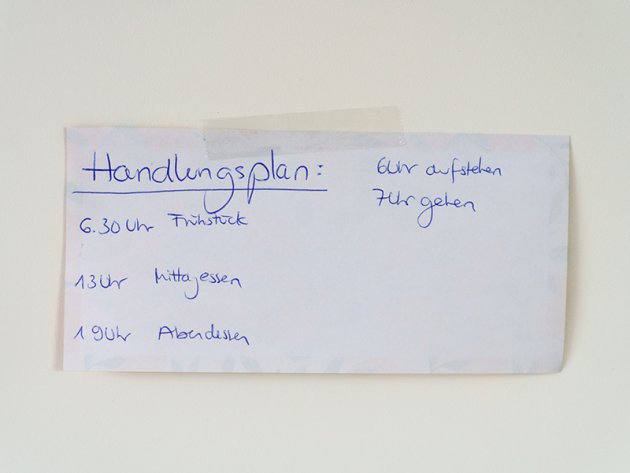 Handlungsplan:
6.30 Uhr Frühstück
13 Uhr Mittagessen
19 Uhr Abendessen
6 Uhr aufstehen
7 Uhr gehen